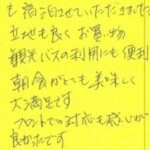 も宿泊させていただきました
立地も良く お買い物
観光バスの利用にも便利
朝食がとても美味しく
大満足です
フロントでの対応も感じが
良かったです